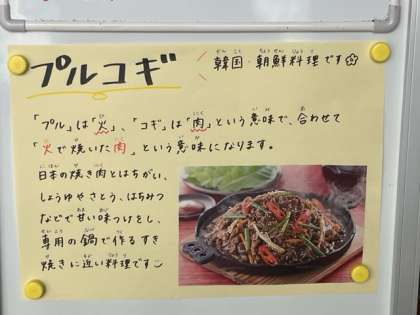 プルコギ
韓国・朝鮮料理です
「プル」は「火」、「コギ」は「肉」という意味で、合わせて
「火で焼いた肉」という意味になります。
日本の焼き肉とはちがい、
しょうゆやさとう、はちみつ
などで甘い味つけをし、
専用の鍋で作るすき
焼きに近い料理です